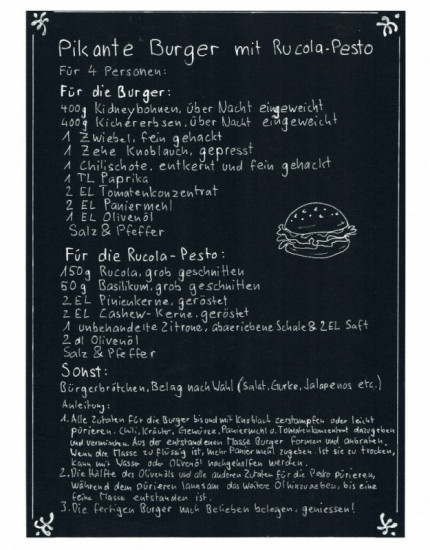 Pikante Burger mit Rucola-Pesto
Für 4 Personen:
Für die Burger:
400g Kidneybohnen, über Nacht eingeweicht
400g Kichererbsen, über Nacht eingeweicht
1 Zwiebel, fein gehackt
1 Zehe Knoblauch, gepresst
1 Chilischote, entkernt und fein gehackt
1 TL Paprika
2 EL Tomatenkonzentrat
2 EL Paniermehl
1 EL Olivenöl
Salz & Pfeffer
Für die Rucola-Pesto:
150g Rucola, grob geschnitten
50g Basilikum, grob geschnitten
2 EL Pinienkerne, geröstet
2 EL Cashew-Kerne, geröstet
1 unbehandelte Zitrone, abgeriebene Schale & 2EL Saft
2 dl Olivenöl
Salz & Pfeffer
Sonst:
Bürgerbrötchen, Belag nach Wahl (Salat, Gurke, Jalapenos etc.)
Anleitung:
1. Alle Zutaten für die Burger bis und mit Knoblach zerstampfen oder leicht
pürieren. Chili, Kräuter, Gewürze, Paniermehl u. Tomatenkonzentrat dazugeben
und vermischen. Aus der entstandenen Masse Burger formen und anbraten.
Wenn die Masse zu flüssig ist, mehr Paniermehl zugeben. Ist sie zu trocken,
kann mit Wasser oder Olivenöl nachgeholfen werden.
2. Die Hälfte des Olivenöls und alle anderen Zutaten für die Pesto pürieren,
Während dem pürieren langsam das weitere Öl hinzugeben, bis eine
feine Masse entstanden ist.
3. Die fertigen Burger nach Belieben belegen, geniessen!